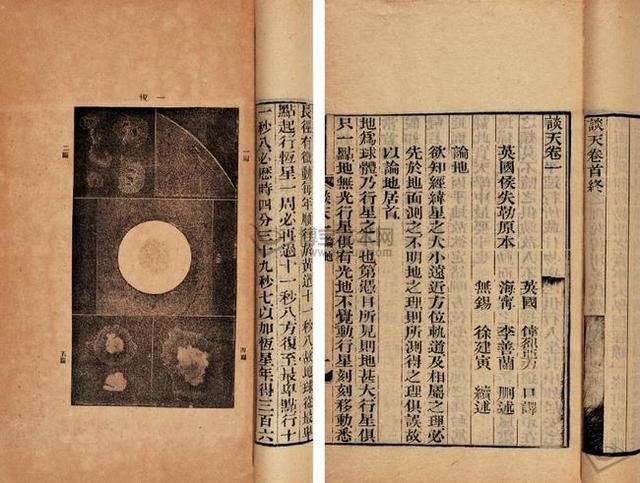 談天卷首終
談天卷一
英國侯失勒原本
英國 偉烈亞力 口譯
海寧 李善蘭 刪述
無錫 徐建寅 續述
論地
欲知經緯星之大小遠近方位軌道及相屬之理必
先於地面測之不明地之理則所測得之理俱誤故
以論地居首
地爲球體乃行星之一也第憑目所見則地甚大行星俱
只一點地無光行星俱有光地不覺動行星刻刻移動悉
談天 論地
長徑有微動每年順行於黃道十一秒八故地球從最卑
點起行恆星一周必再過十一秒八方復至最卑點行十
一秒八必歷時四分三十九秒七以加恆星年得三百六